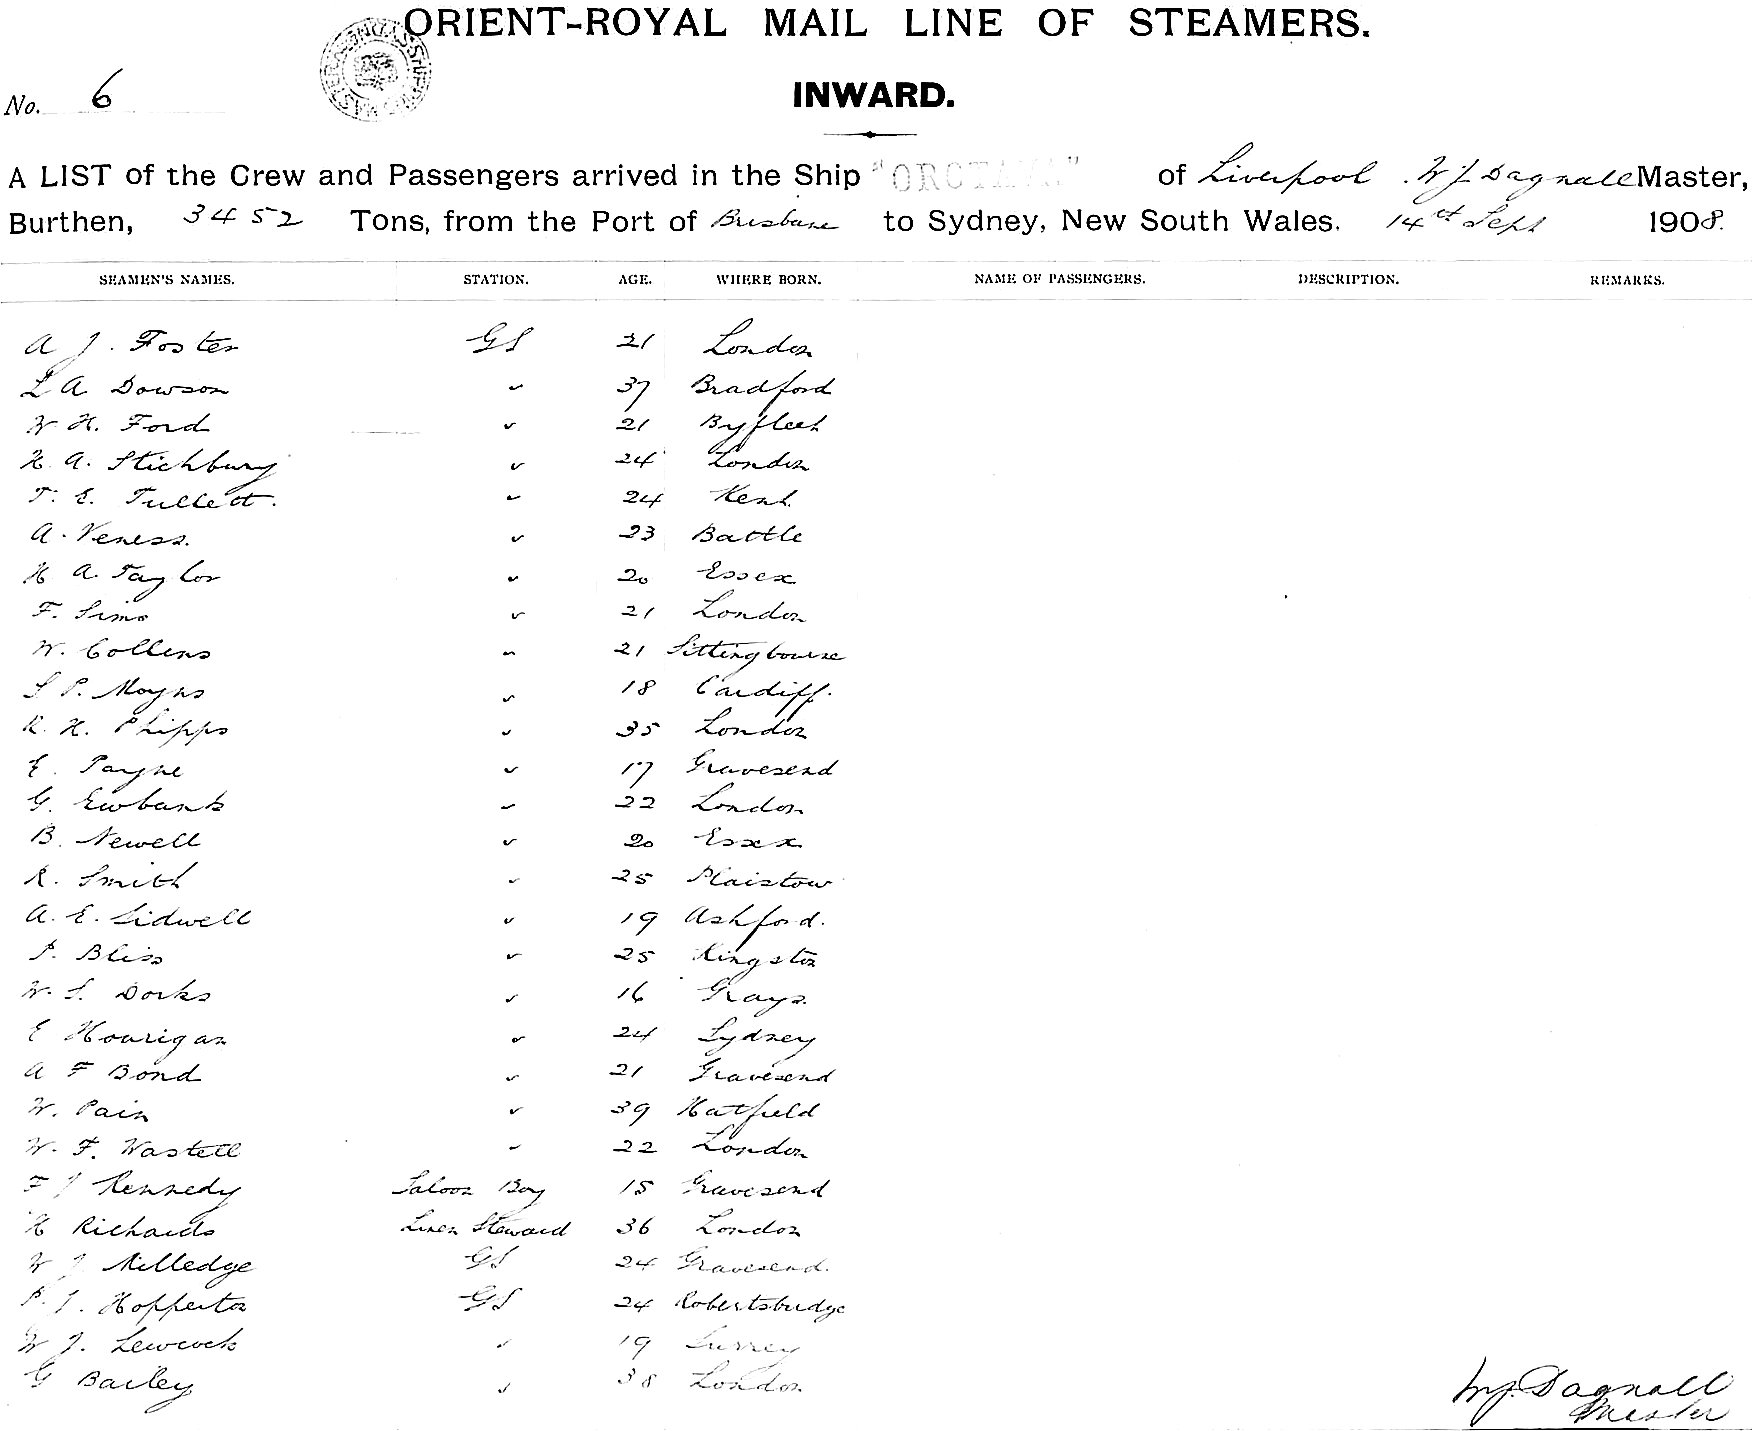 ORIENT-ROYAL MAIL LINE OF STEAMERS.
No. 6
INWARD.
A LIST of the Crew and Passengers arrived in the Ship "OROTAVA" of Liverpool W J Dagnall Master,
Burthen, 3452 Tons, from the Port of Brisbane to Sydney, New South Wales. 14th Sept 1908.
SEAMEN'S NAMES. STATION. AGE. WHERE BORN. NAME OF PASSENGERS. DESCRIPTION. REMARKS.
A J. Foster GS 21 London
L A Dowson " 37 Bradford
W H. Ford " 21 Byfleet
H. A. Stichbury " 24 London
T. E. Tullett. " 24 Kent
A. Veness. " 23 Battle
H A. Taylor " 20 Essex
F. Sims " 21 London
W. Collens " 21 Sittingbourne
S P. Moyns " 18 Cardiff.
R. H. Phipps " 35 London
E. Payne " 17 Gravesend
G. Ewbank " 22 London
B. Newell " 20 Essex
R. Smith " 25 Plaistow
A. E. Sidwell " 19 Ashford.
P. Bliss " 25 Kingston
W. S. Dorks " 16 Grays.
E Hourigan " 24 Sydney
A F Bond " 21 Gravesend
W. Pain " 39 Hatfield
W. F. Wastell " 22 London
F J Kennedy Saloon Boy 15 Gravesend
H Richards Linen Steward 36 London
W J Milledge GS 24 Gravesend.
P. J. Hopperton GS 24 Robertsbridge
W J. Lewcock " 19 Surrey
G Bailey " 38 London
W J. Dagnall
Master